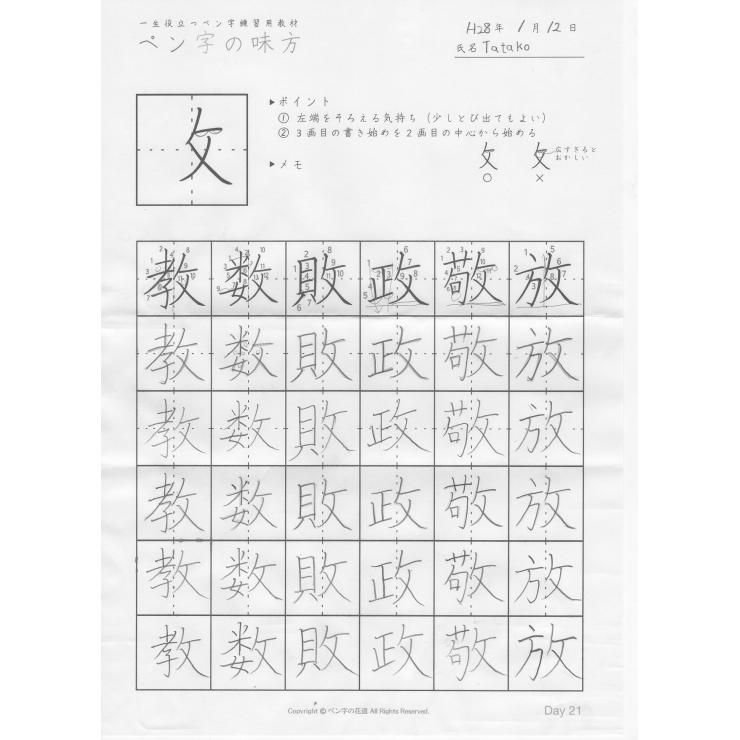 一生役立つペン字練習用教材
ペン字の味方
H28年 1月12日
氏名 Tatako
攵
▶ポイント
① 左端をそろえる気持ち（少しとび出てもよい）
② 3画目の書き始めを2画目の中心から始める
▶メモ
攵 攵 広すぎると
おかしい
○ ×
教 数 敗 政 敬 放
教 数 敗 政 敬 放
教 数 敗 政 敬 放
教 数 敗 政 敬 放
教 数 敗 政 敬 放
教 数 敗 政 敬 放
Copyright © ペン字の花道 All Rights Reserved.
Day 21